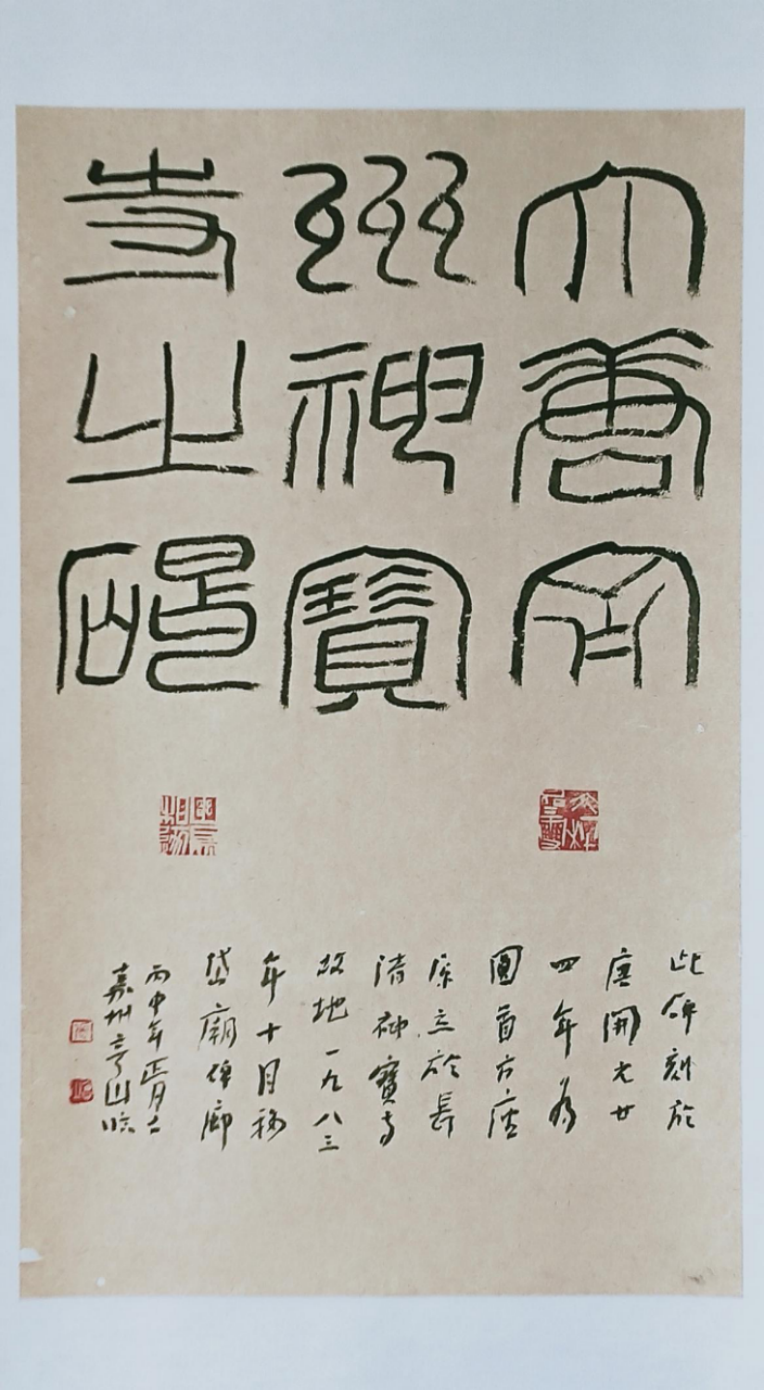 大唐齊
州神寶
寺之碣
此碑刻於
唐開元廿
四年為
圓首方座
原立於長
清神寶寺
故地一九八三
年十月移
岱廟碑廊
丙申年正月
嘉州山臨